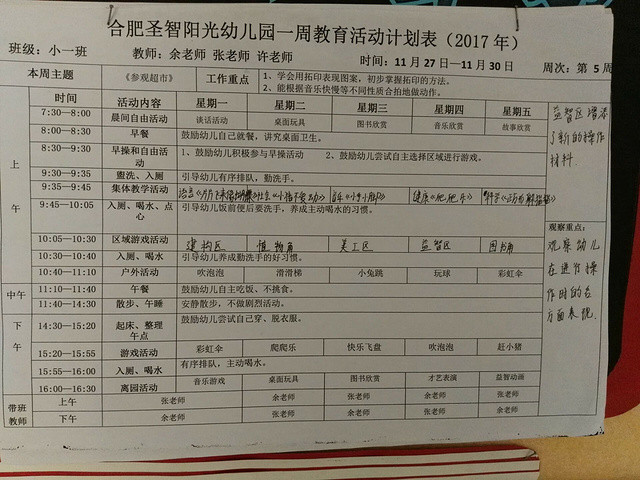 合肥圣智阳光幼儿园一周教育活动计划表（2017 年）
班级：小一班 教师：余老师 张老师 许老师 时间：11 月 27 日—11 月 30 日 周次：第 5 周
本周主题 《参观超市》 工作重点 1、学会用拓印表现图案，初步掌握拓印的方法。
2、能根据音乐快慢等不同性质合拍地做动作。
时间 活动内容 星期一 星期二 星期三 星期四 星期五
上午
7:30—8:00 晨间自由活动 谈话活动 桌面玩具 图书欣赏 音乐欣赏 故事欣赏
8:00—8:30 早餐 鼓励幼儿自己就餐，讲究桌面卫生。
8:30—9:30 早操和自由活动 1、鼓励幼儿积极参与早操活动 2、鼓励幼儿尝试自主选择区域进行游戏。
9:30—9:35 盥洗、入厕 引导幼儿有序排队，勤洗手。
9:35—9:45 集体教学活动
9:45—10:05 入厕、喝水、点心 引导幼儿饭前便后要洗手，养成主动喝水的习惯。
10:05—10:30 区域游戏活动 建构区 植物角 美工区 益智区 图书角
10:30—10:40 入厕、喝水 引导幼儿养成勤洗手的好习惯。
10:40—11:10 户外活动 吹泡泡 滑滑梯 小兔跳 玩球 彩虹伞
中午
11:10—11:40 午餐 鼓励幼儿自主吃饭、不挑食。
11:40—14:30 散步、午睡 安静散步，不做剧烈活动。
下午
14:30—15:20 起床、整理午点 鼓励幼儿尝试自己穿、脱衣服。
15:20—15:55 游戏活动 彩虹伞 爬爬乐 快乐飞盘 吹泡泡 赶小猪
15:55—16:00 入厕、喝水 有序排队，主动喝水。
16:00—16:30 离园活动 音乐游戏 桌面玩具 图书欣赏 才艺表演 益智动画
带班教师 上午 张老师 余老师 张老师 余老师 张老师
下午 余老师 张老师 余老师 张老师 余老师
益智区增添
了新的操作
材料.
观察重点：
观察幼儿
在进行操
作时的各
方面表现.